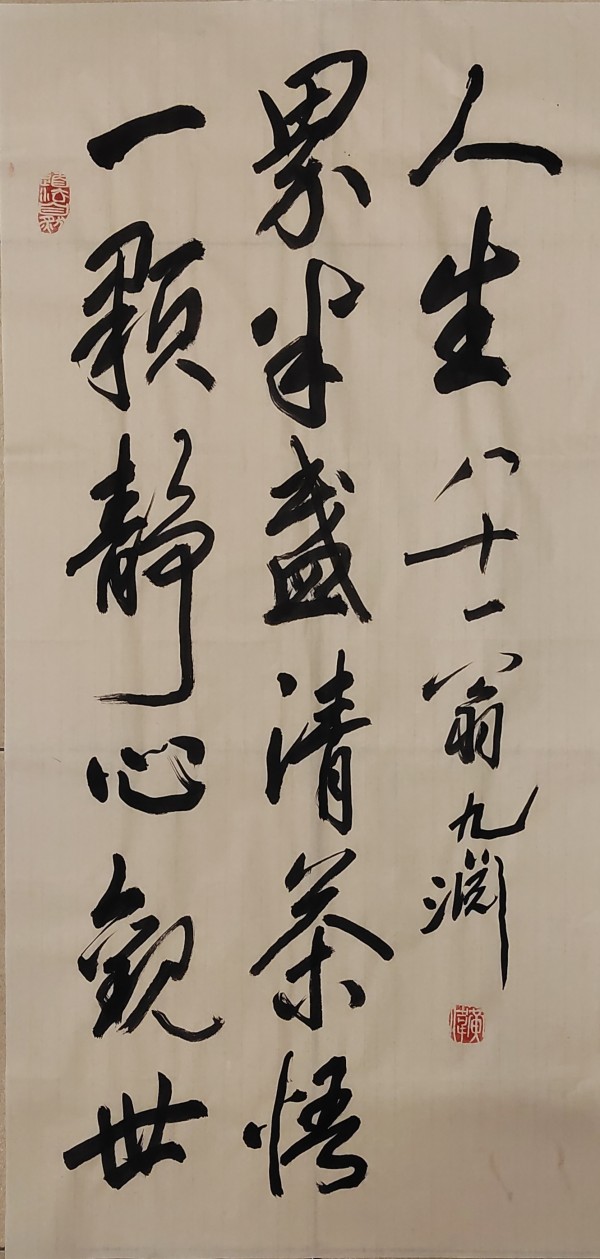 一顆静心觀世
界半盞清茶悟
人生 八十一翁九淵